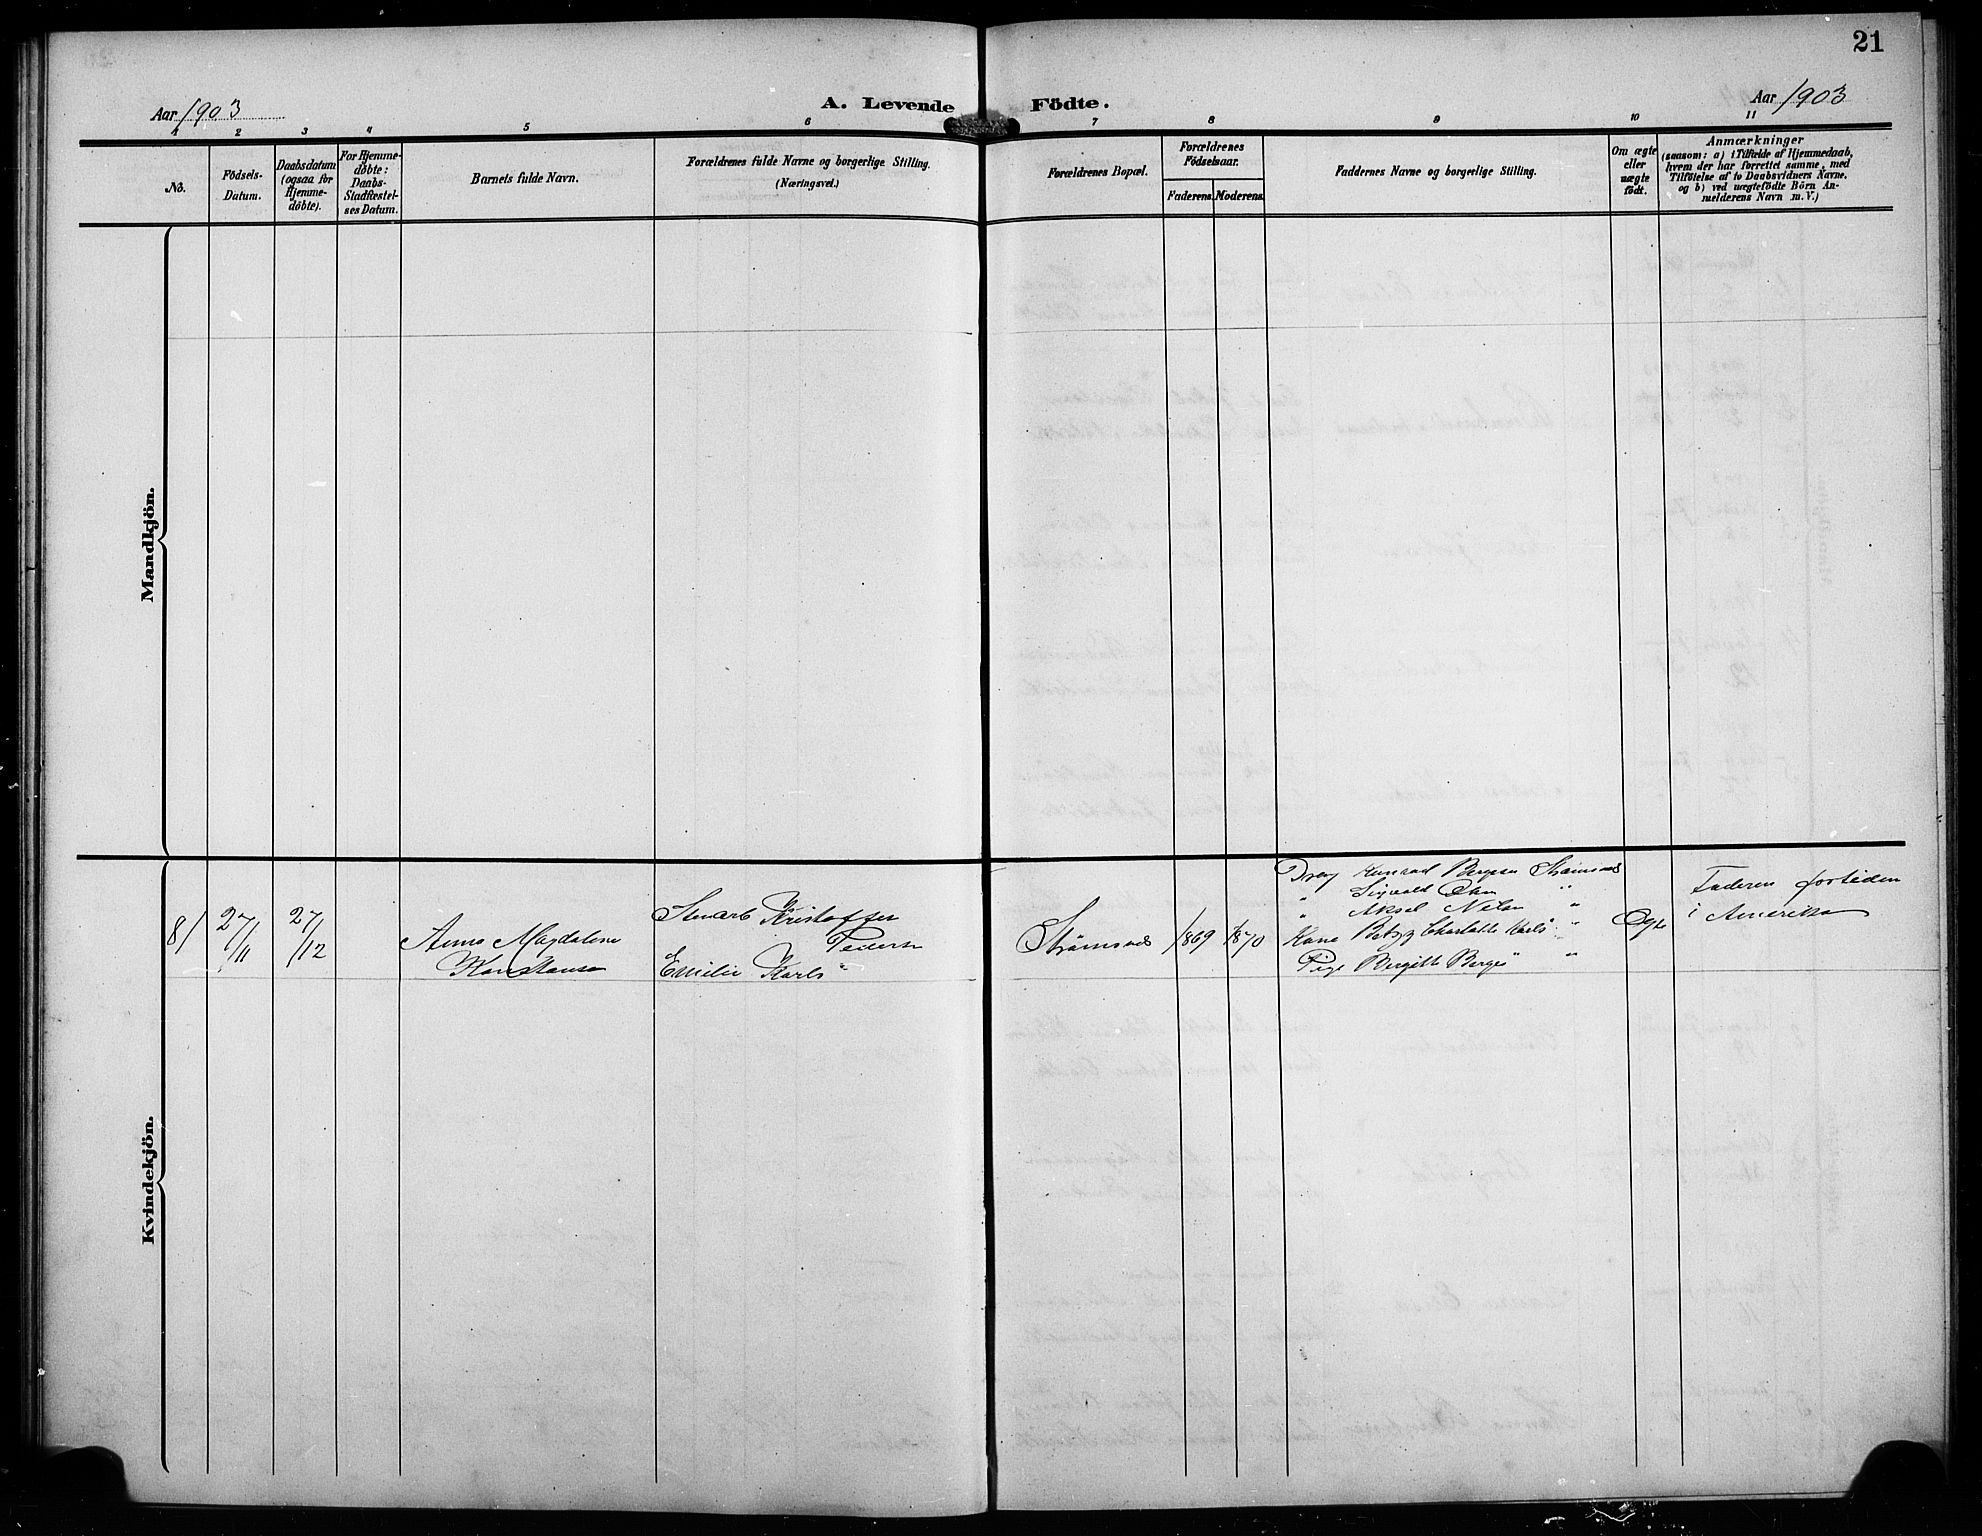 21
Aar 1903
A. Levende Födte.
Aar 1903
1 2 3 4 5 6 7 8 9 10 11
No.
Födsels-
Datum.
Daabsdatum
(ogsaa for
Hjemme-
döbte).
For Hjemme-
döbte:
Daabs-
Stadfæstel-
ses Datum.
Barnets fulde Navn.
Forældrenes fulde Navne og borgerlige Stilling.
(Næringsvei.)
Forældrenes Bopæl.
Forældrenes
Födselsaar.
Faderens. Moderens.
Faddernes Navne og borgerlige Stilling.
Om ægte
eller
uægte
födt.
Anmærkninger
(saasom: a) i Tilfælde af Hjemmedaab,
hvem der har forrettet samme, med
Tilföielse af to Daabsvidners Navne,
og b) ved uægtefödte Börn An-
melderens Navn m. V.)
Mandkjön.
Kvindekjön.
8/
27/11
27/12
Anna Magdalene
Konstanse
Kristoffer
Pedersen
Emilie Karls "
Strömsnes
1869
1870
Konrad Bergesen Strömsnes
" Sigvald Olsen "
" Aksel Nelsen "
Kone Betzy Charlotte Karls " "
Pige Bergitte Berges " "
Ægte
Faderen fortiden
i Amerika